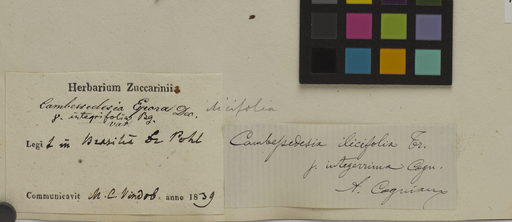 Herbarium Zuccarinii
Cambessedesia Ilicifolia
γ. integrifolia
var
Legit in Brasilia Dr Pohl
Communicavit M. C. Vindob. anno 1839
ilicifolia
Cambessedesia ilicifolia Tr.
γ. integerrima Cogn.
A. Cogniaux